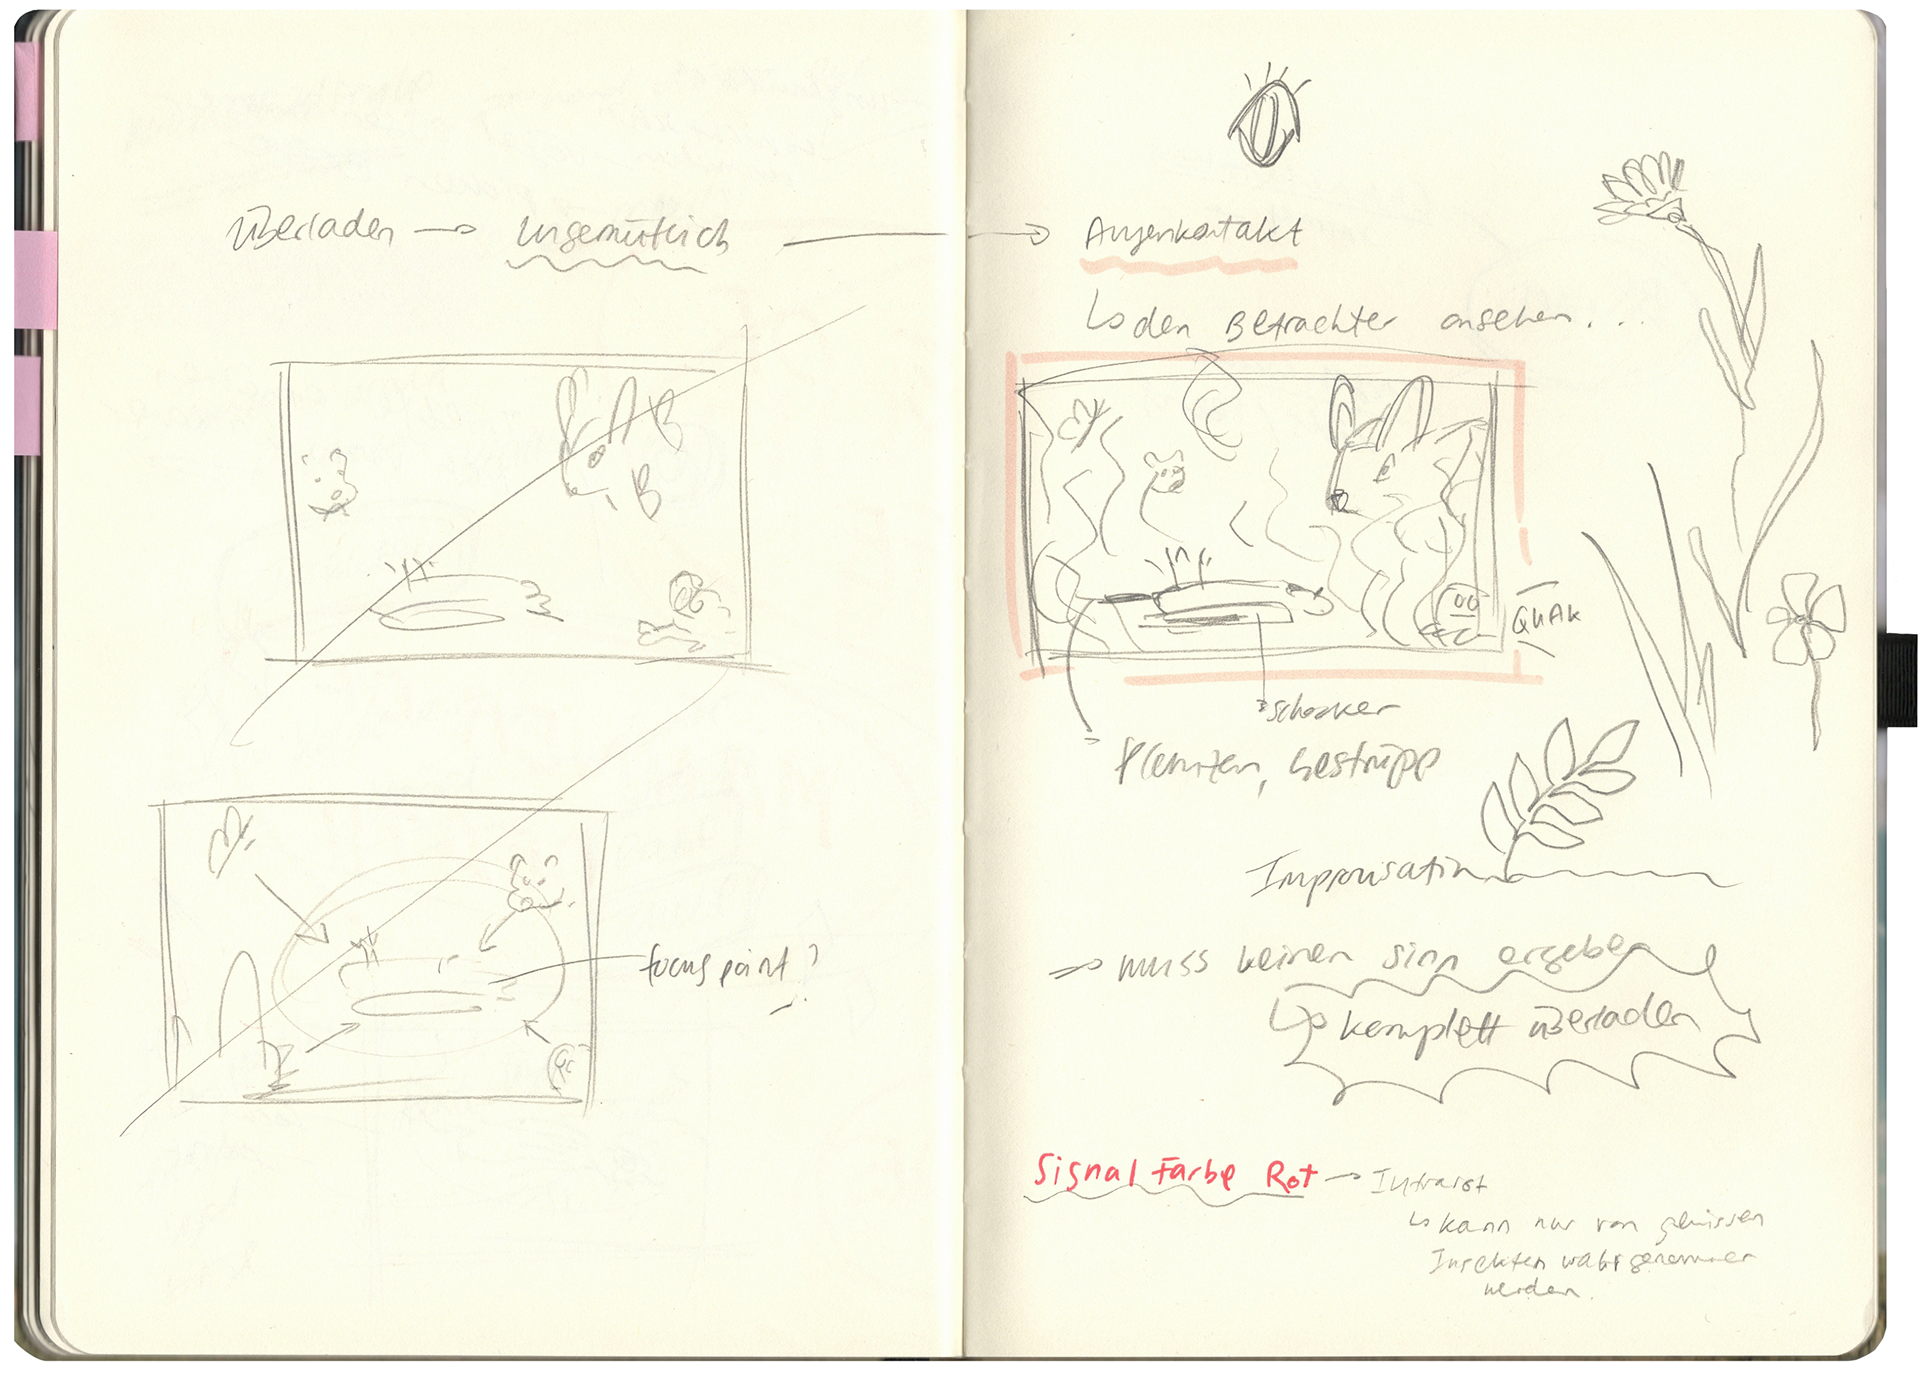 Überladen → ungemütlich → Augenkontakt
↳ den Betrachter ansehen...
QUAK
schocker
Pflanzen, Gestrüpp
Improvisation
focus point?
⇒ muss keinen sinn ergeben
↳ komplett überladen
Signal Farbe Rot → Infrarot
↳ kann nur von gewissen
Insekten wahrgenommen
werden.